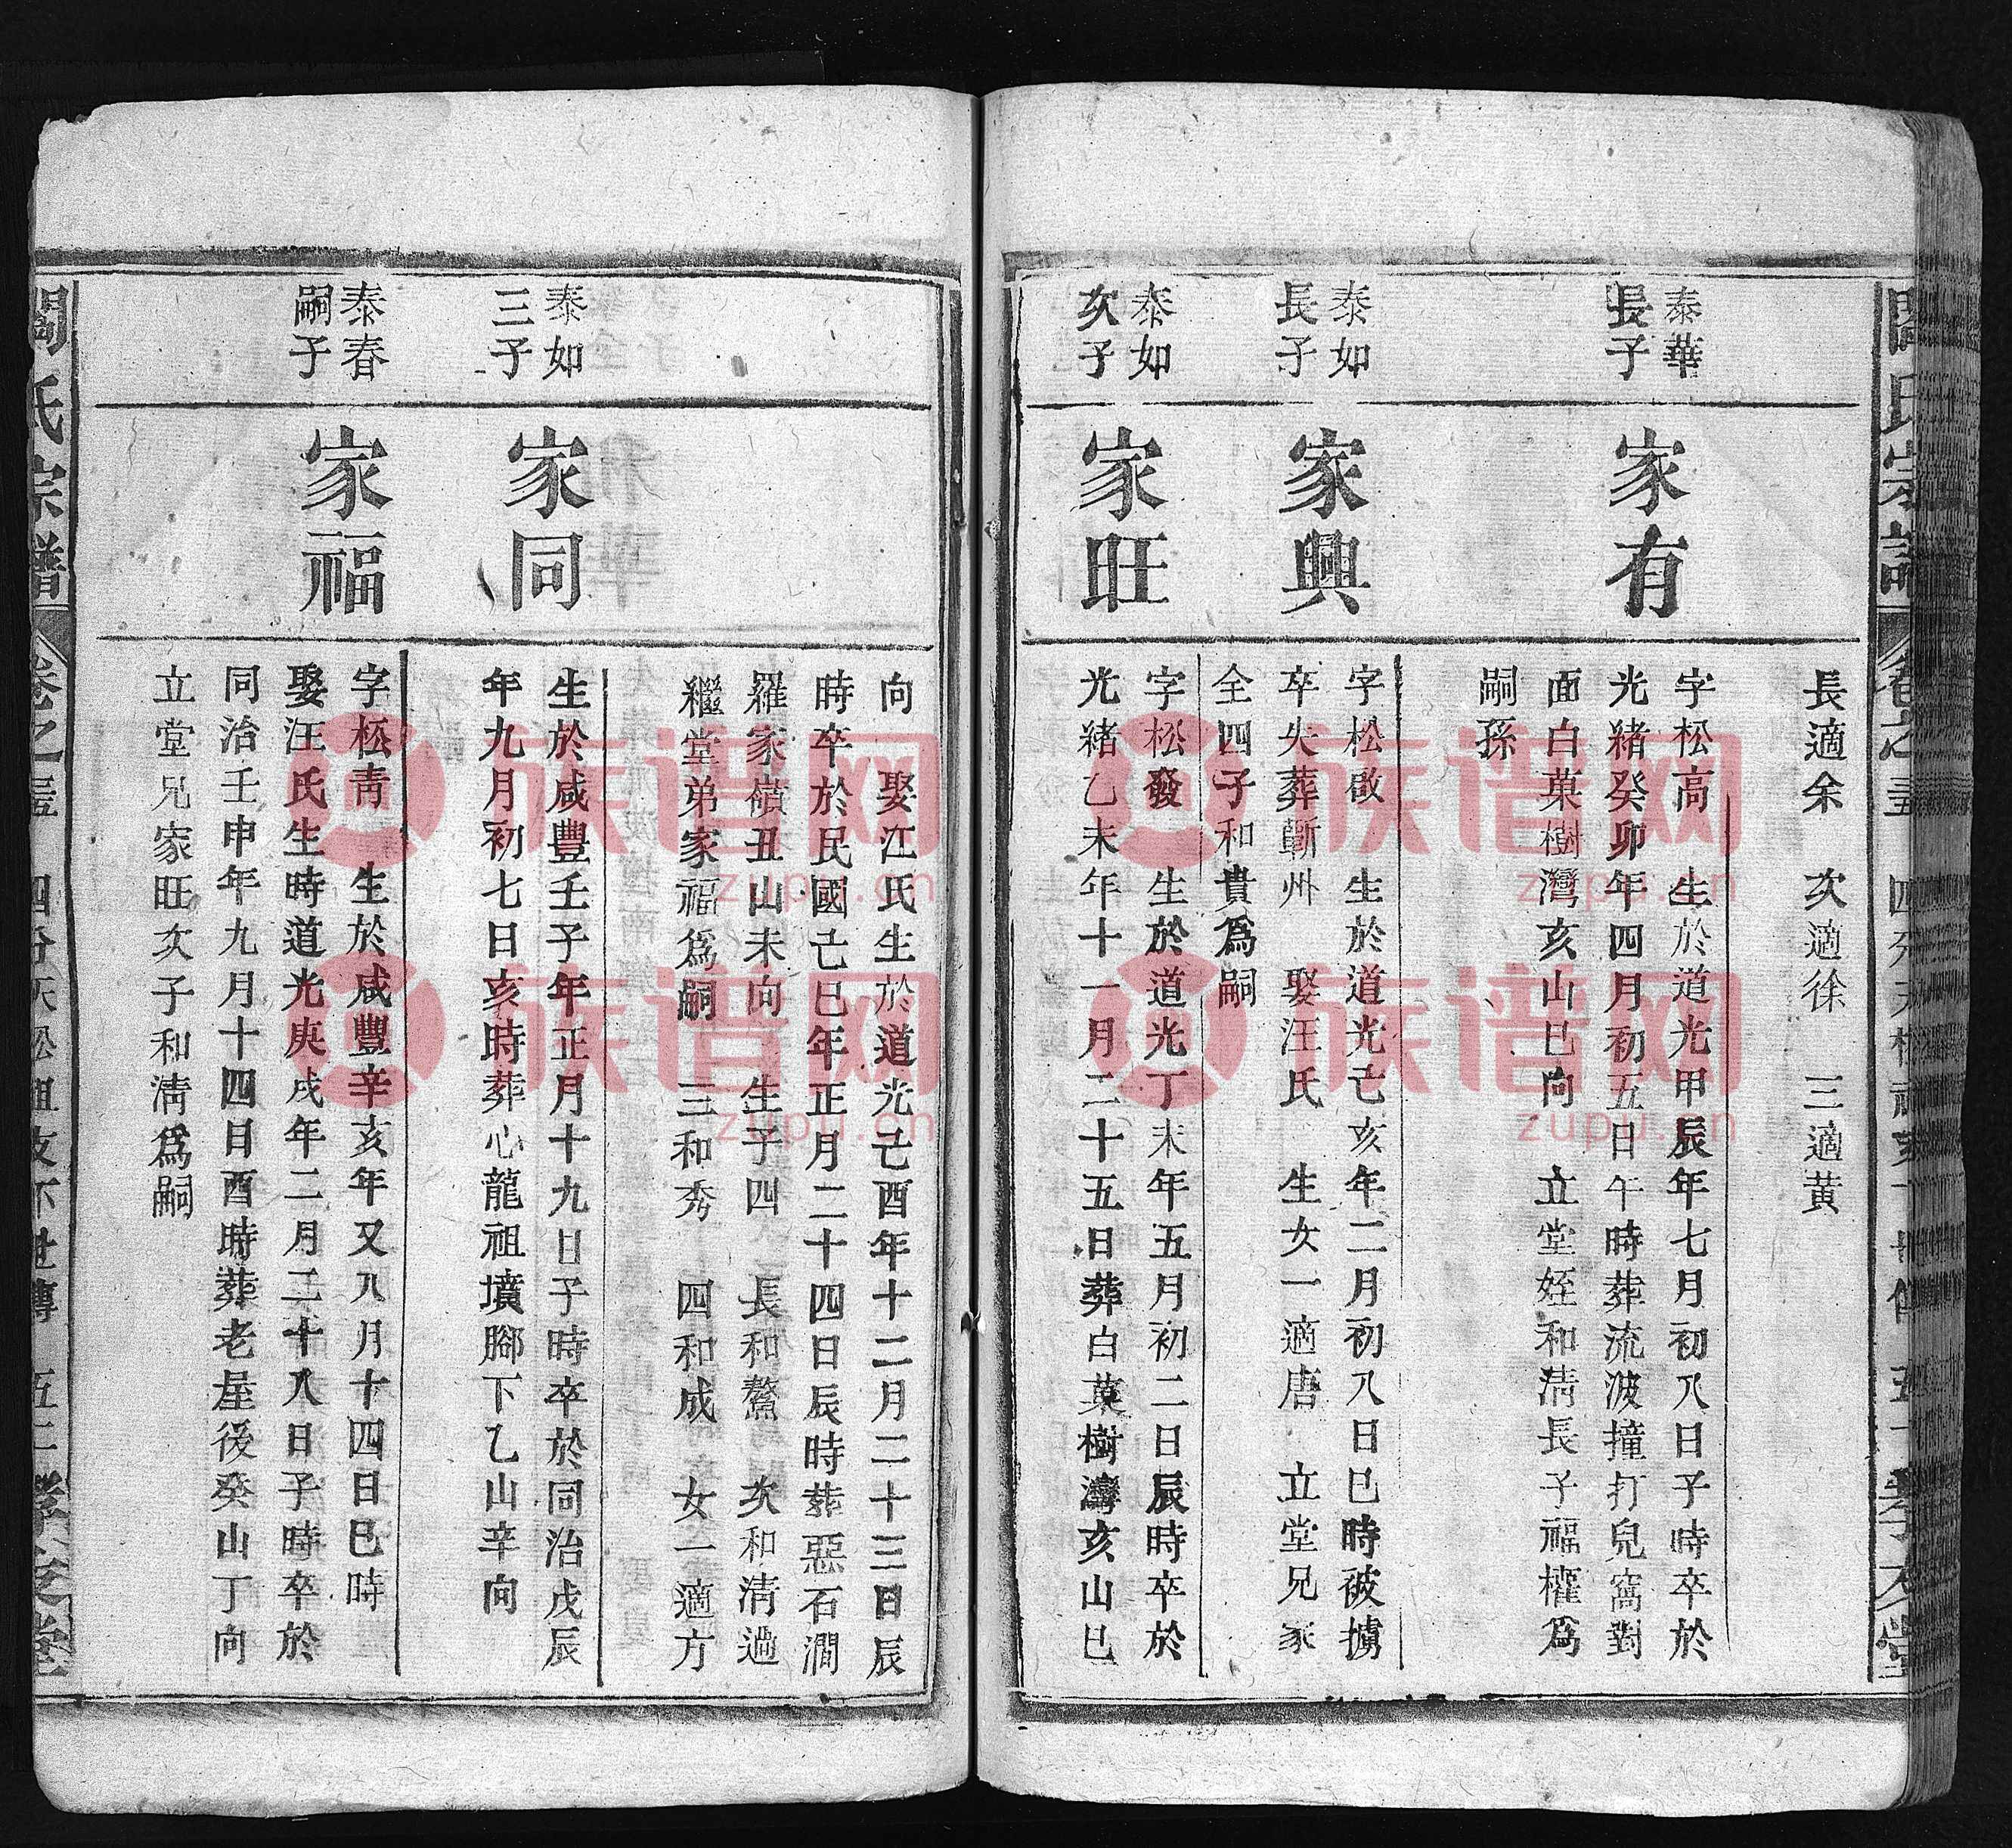 長適余 次適徐 三適黄
泰華
長子
家有
字松高 生於道光甲辰年七月初八日子時卒於
光緒癸卯年四月初五日午時葬流波撞打兒窩對
面白菓樹灣亥山巳向 立堂姪和淸長子福權爲
嗣孫
泰如
長子
家興
字松啟 生於道光己亥年二月初八日巳時被擄
卒失葬蘄州 娶汪氏 生女一適唐 立堂兄家
全四子和貴爲嗣
泰如
次子
家旺
字松發 生於道光丁未年五月初二日辰時卒於
光緒乙未年十一月二十五日葬白菓樹灣亥山巳
向 娶江氏生於道光己酉年十二月二十三日辰
時卒於民國己巳年正月二十四日辰時葬惡石澗
羅家嶺丑山未向 生子四 長和鰲 次和淸過
繼堂弟家福爲嗣 三和秀 四和成 女一適方
泰如
三子
家同
生於咸豐壬子年正月十九日子時卒於同治戊辰
年九月初七日亥時葬心龍祖墳腳下乙山辛向
泰春
嗣子
家福
字松靑 生於咸豐辛亥年又八月十四日巳時
娶汪氏生時道光庚戌年二月二十八日子時卒於
同治壬申年九月十四日酉時葬老屋後癸山丁向
立堂兄家旺次子和淸爲嗣
氏宗譜 卷之
族谱网
zupu.cn
族谱网
zupu.cn
族谱网
zupu.cn
族谱网
zupu.cn